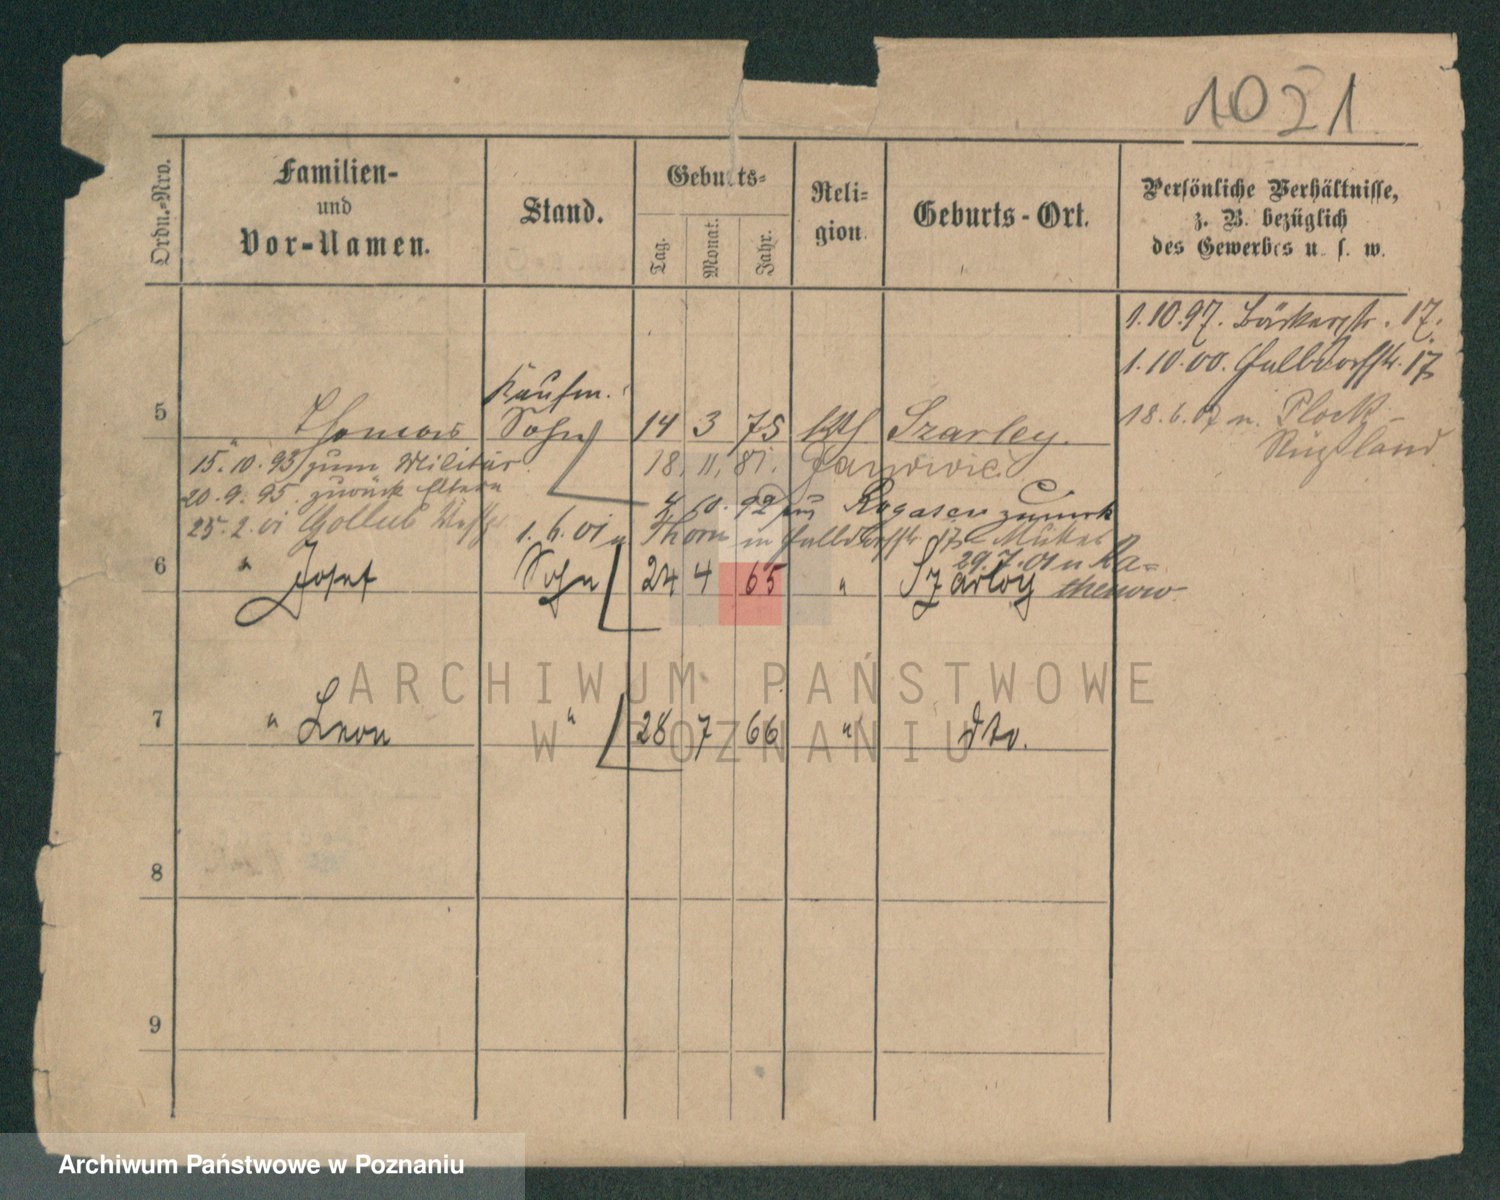 1021
Ordn.-Nro.
Familien-
und
Vor-Namen.
Stand.
Geburts-
Tag.
Monat.
Jahr.
Reli-
gion.
Geburts-Ort.
Persönliche Verhältnisse,
z. B. bezüglich
des Gewerbes u. s. w.
1.10.97. Bäckerstr. 17.
1.10.00. Halbdorfstr. 17
18.6.07 n. Plock-
Rußland
Kaufm.
5 Thomas Sohn 14 3 75 kth Szarley.
15.10.93 zum Militär. 18. 11. 81.
20.9.95. zurück Eltern 10. 92 aus Rogasen zurück
25.2.01 Gollub 1.6.01 v Thorn Halbdorfstr 17 Mutter
29.7.01 n Ra-
thenow
6 " Josef Sohn 24 4 65 " Szarley
7 " Leon " 28 7 66 " dto.
8
9
ARCHIWUM PAŃSTWOWE
W POZNANIU
Archiwum Państwowe w Poznaniu